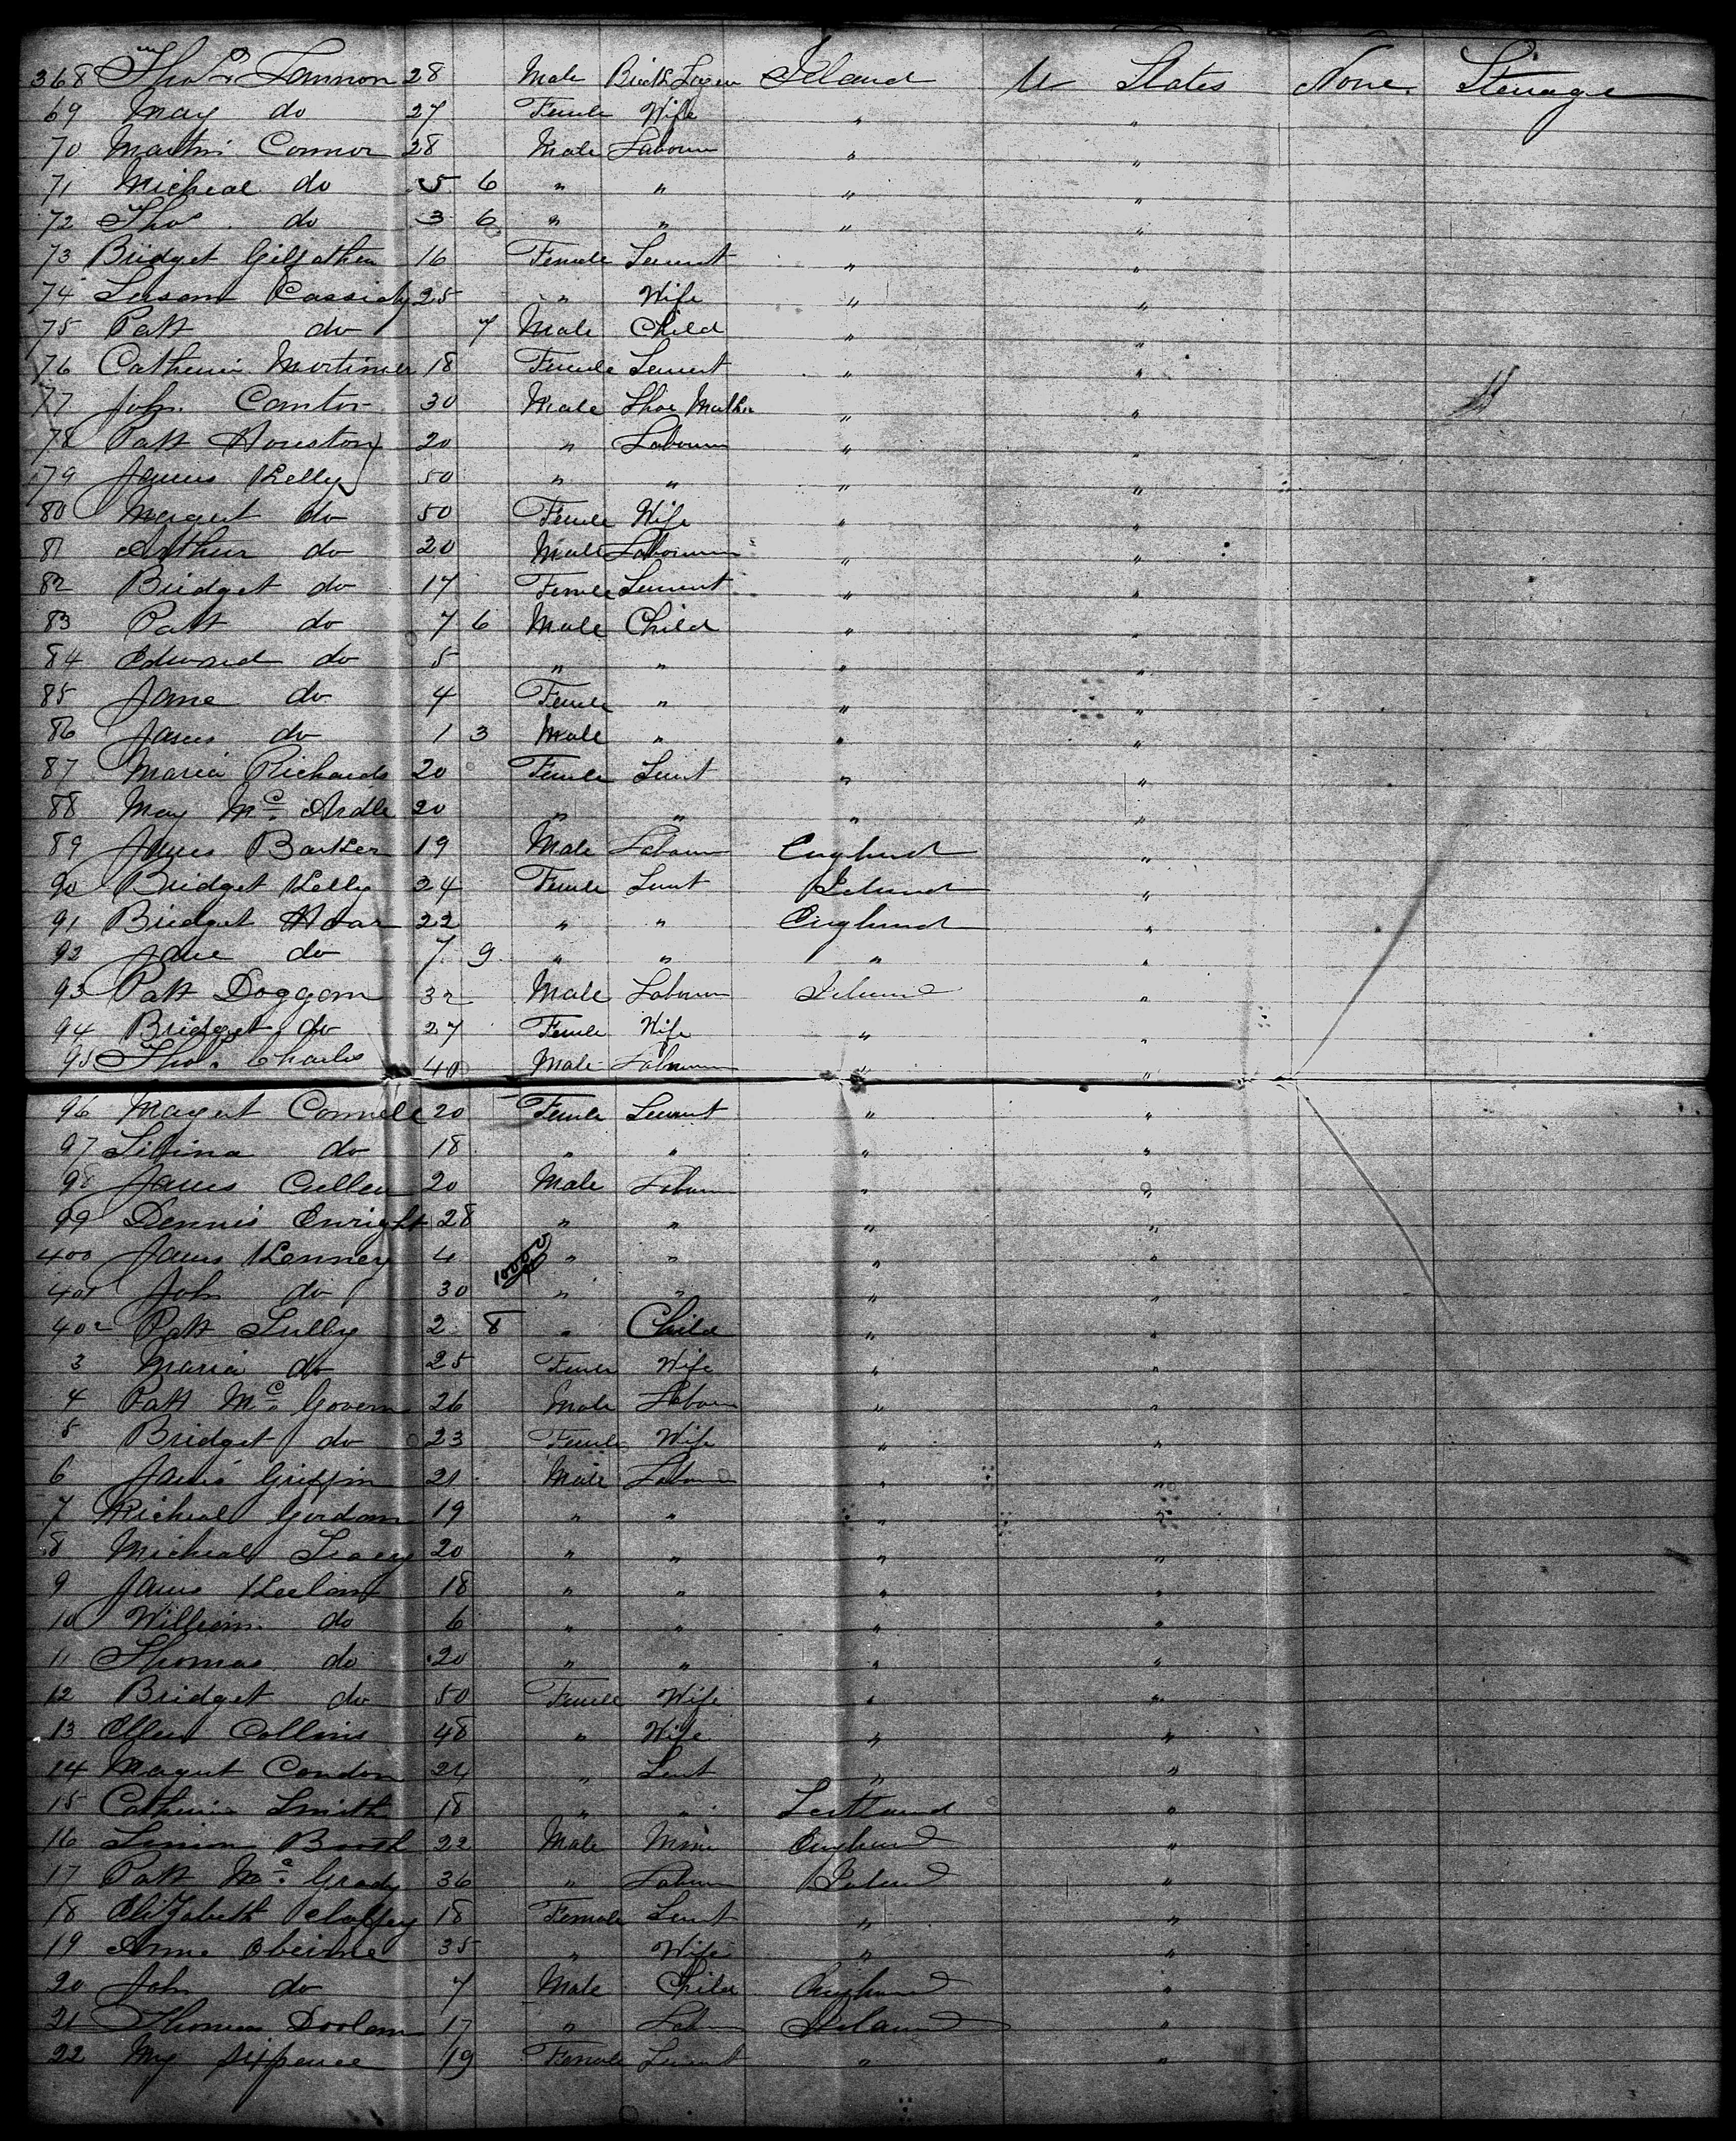 368 Thos Lannon 28 Male Brick Layer Ireland U States None Steerage
69 Mary do 27 Female Wife " "
70 Martin Connor 28 Male Labourer " "
71 Micheal do 5 6 " " " "
72 Thos do 3 6 " " " "
73 Bridget 16 Female Servent " "
74 Susann Cassidy 25 " Wife " "
75 Patt do 7 Male Child " "
76 Catherin Mortimer 18 Female Servent " "
77 John Cantor 30 Male Shoe Maker " "
78 Patt Houston 20 " Labourer " "
79 James Kelly 50 " " " "
80 Margret do 50 Female Wife " "
81 Arthur do 20 Male Labourer " "
82 Bridget do 17 Female Servent " "
83 Patt do 7 6 Male Child " "
84 Edward do 5 " " " "
85 Jane do 4 Female " " "
86 James do 1 3 Male " " "
87 Maria Richards 20 Female Servt " "
88 Mary Mc Ardle 20 " " " "
89 James Barker 19 Male Labourer England "
90 Bridget Kelly 24 Female Servt Ireland "
91 Bridget Hoar 22 " " England "
92 do 7 9 " " " "
93 Patt Doggan 32 Male Labourer Ireland "
94 Bridget do 27 Female Wife " "
95 Thos Charles 40 Male Labourer " "
96 Margret Connell 20 Female Servent " "
97 do 18 " " " "
98 James Cullen 20 Male Labourer " "
99 Dennis Enright 28 " " " "
400 James Kenney 4 " " " "
401 John do 30 " " " "
402 Patt Lully 2 8 " Child " "
3 Maria do 25 Female Wife " "
4 Patt Mc Govern 26 Male Labourer " "
5 Bridget do 23 Female Wife " "
6 James Griffin 21 Male Labourer " "
7 Micheal Gordan 19 " " " "
8 Micheal 20 " " " "
9 James Keelan 18 " " " "
10 William do 6 " " " "
11 Thomas do 20 " " " "
12 Bridget do 50 Female Wife " "
13 Ellen Collins 48 " Wife " "
14 Margret Condon 24 " Servt " "
15 Catherine Smith 18 " " Scotland "
16 Simion Booth 22 Male Miner England "
17 Patt Mc Grady 36 " Labourer Ireland "
18 Elizabeth Claffey 18 Female Servt " "
19 Anne Obeirne 35 " Wife " "
20 John do 7 Male Child England "
21 Thomas Doolan 17 " Labr Ireland "
22 My Sixpence 19 Female Servent " "